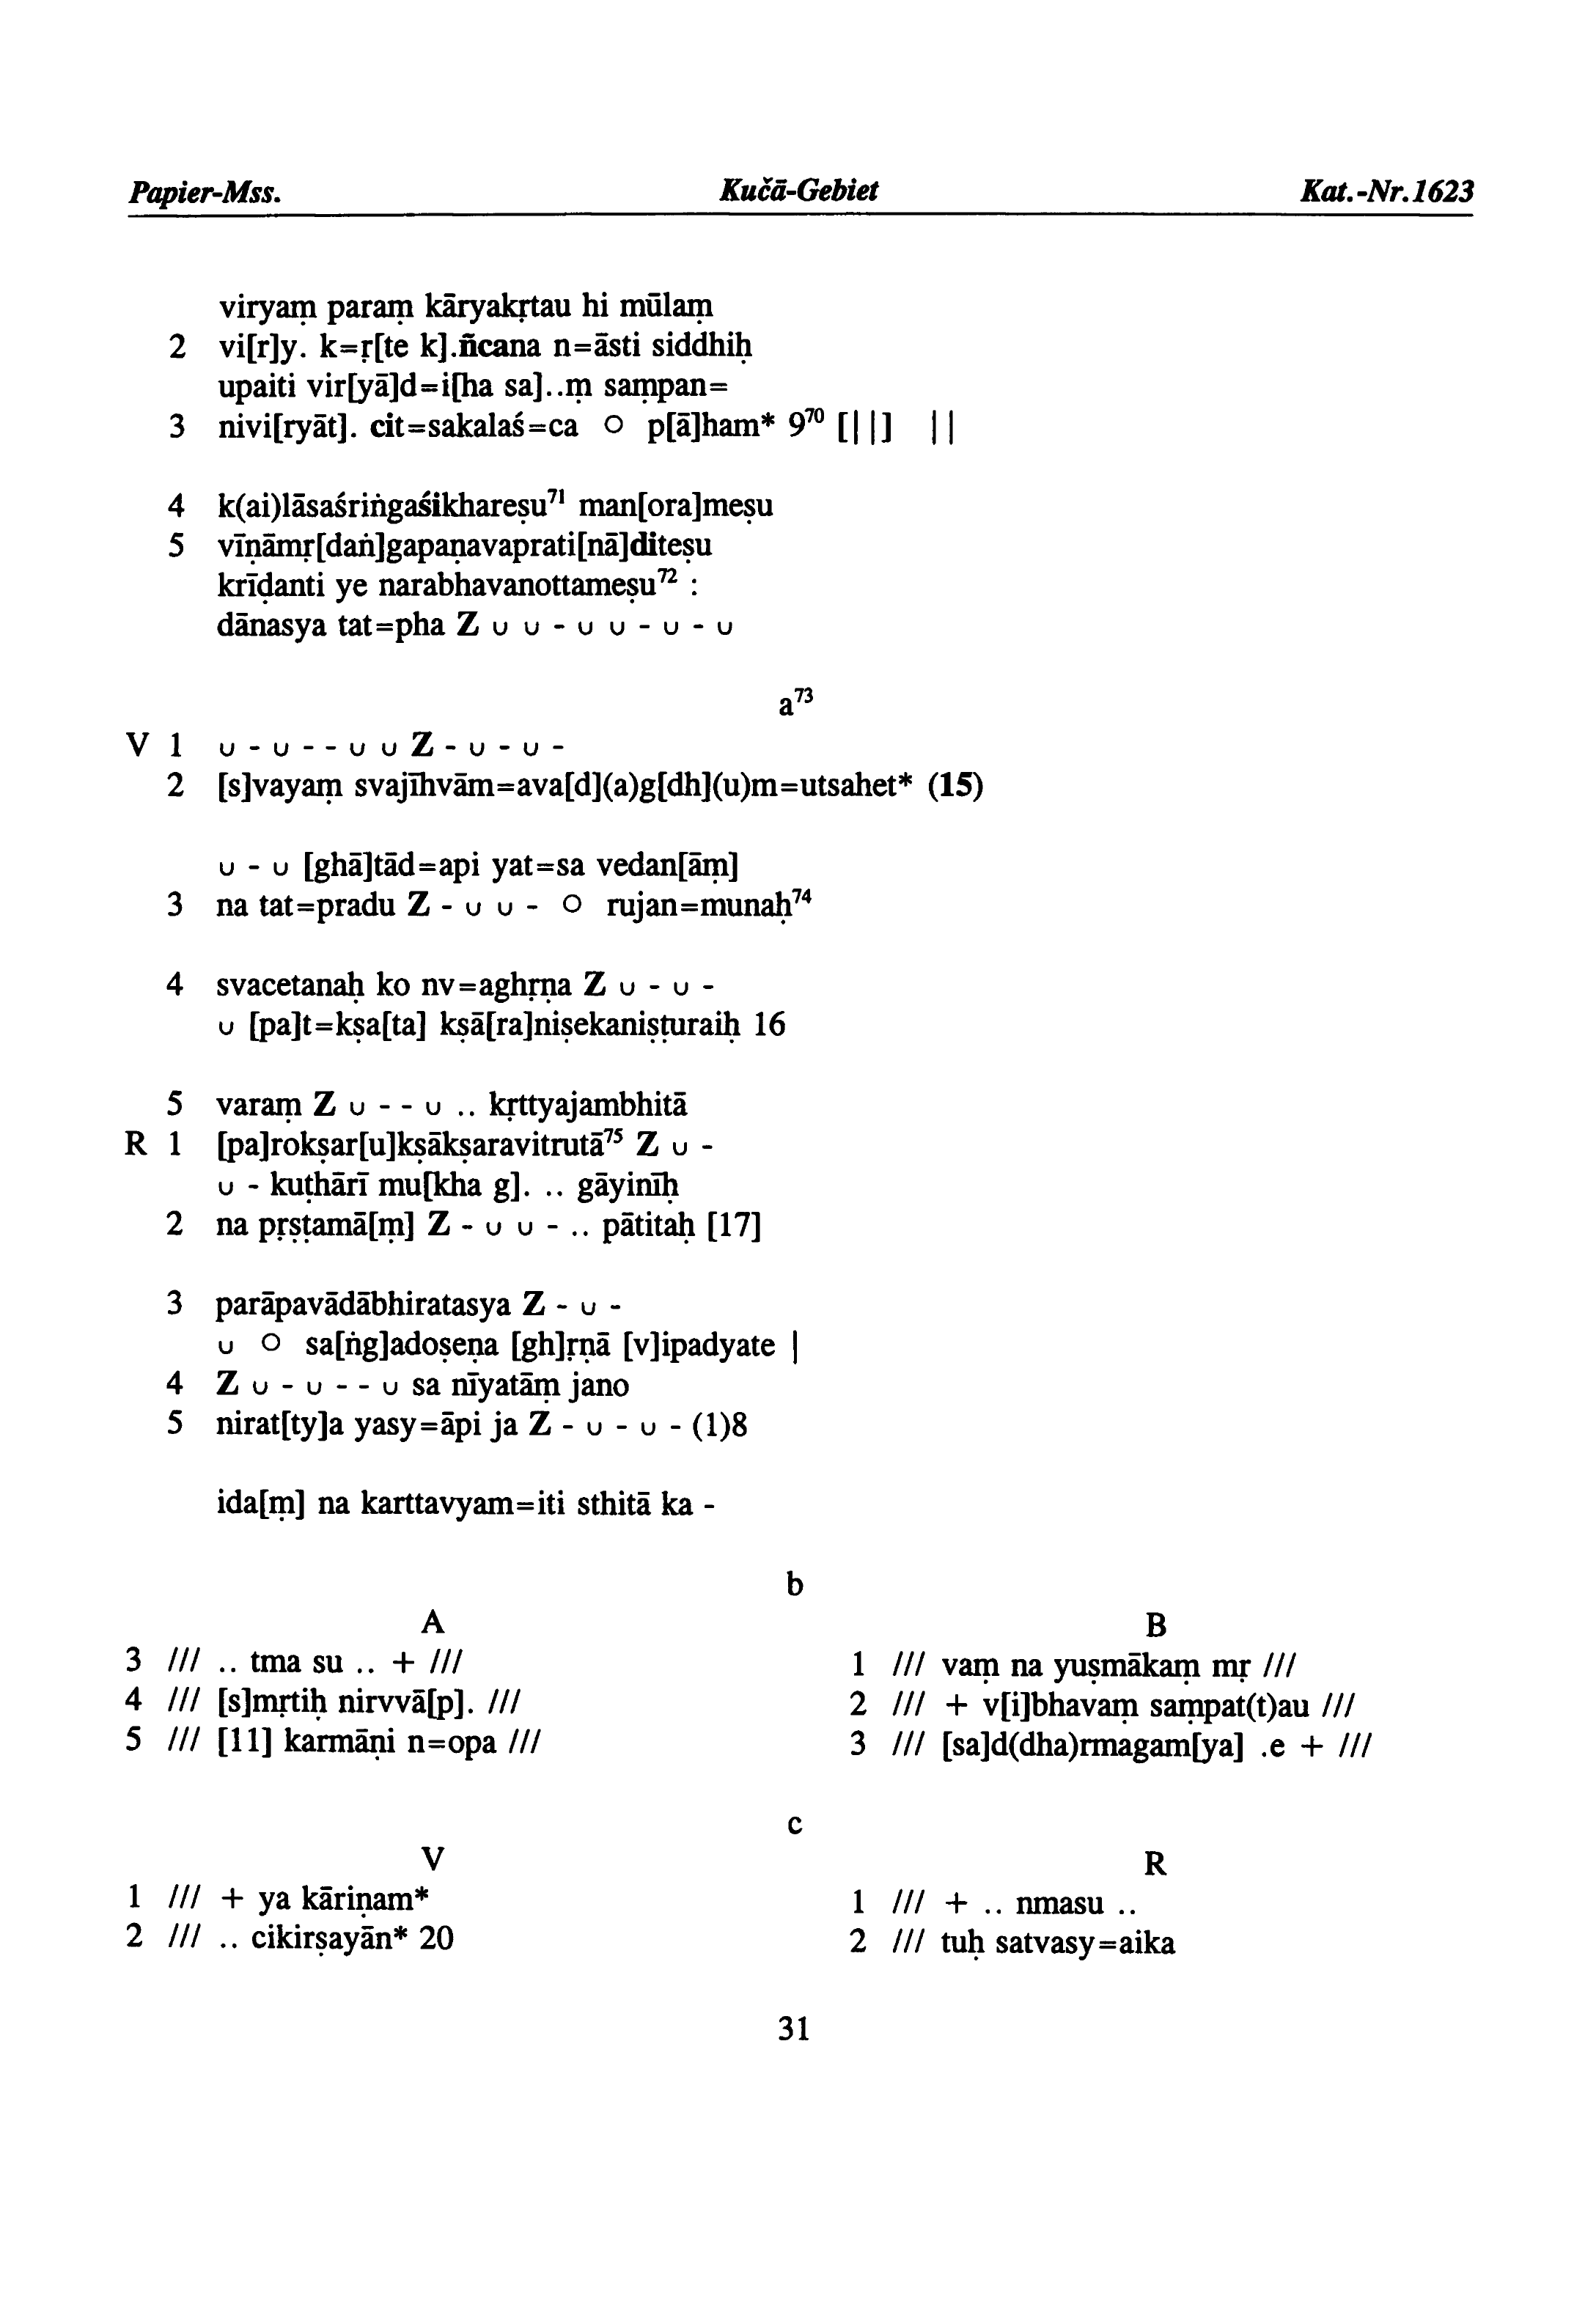 Papier-Mss. Kučā-Gebiet Kat.-Nr.1623
viryaṃ paraṃ kāryakṛtau hi mūlaṃ
2 vi[r]y. k=ṛ[te k].ñcana n=āsti siddhiḥ
upaiti vir[yā]d=i[ha sa]..ṃ saṃpan=
3 nivi[ryāt]. cit=sakalaś=ca ○ p[ā]ham* 9⁷⁰ [||] ||
4 k(ai)lāsaśriṅgaśikhareṣu⁷¹ man[ora]meṣu
5 vīṇāmṛ[daṅ]gapaṇavaprati[nā]diteṣu
krīḍanti ye narabhavanottameṣu⁷² :
dānasya tat=pha Z ∪ ∪ - ∪ ∪ - ∪ - ∪
a⁷³
V 1 ∪ - ∪ - - ∪ ∪ Z - ∪ - ∪ -
2 [s]vayaṃ svajīhvām=ava[d](a)g[dh](u)m=utsahet* (15)
∪ - ∪ [ghā]tād=api yat=sa vedan[āṃ]
3 na tat=pradu Z - ∪ ∪ - ○ rujan=munaḥ⁷⁴
4 svacetanaḥ ko nv=aghṛṇa Z ∪ - ∪ -
∪ [pa]t=kṣa[ta] kṣā[ra]niṣekaniṣṭuraiḥ 16
5 varaṃ Z ∪ - - ∪ .. kṛttyajambhitā
R 1 [pa]rokṣar[u]kṣākṣaravitrutā⁷⁵ Z ∪ -
∪ - kuṭhārī mu[kha g]. .. gāyinīḥ
2 na pṛṣṭamā[ṃ] Z - ∪ ∪ - .. pātitaḥ [17]
3 parāpavādābhiratasya Z - ∪ -
∪ ○ sa[ṅg]adoṣeṇa [gh]ṛṇā [v]ipadyate |
4 Z ∪ - ∪ - - ∪ sa nīyatāṃ jano
5 nirat[ty]a yasy=āpi ja Z - ∪ - ∪ - (1)8
ida[ṃ] na karttavyam=iti sthitā ka -
b
A
3 /// .. tma su .. + ///
4 /// [s]mṛtiḥ nirvvā[p]. ///
5 /// [11] karmāṇi n=opa ///
B
1 /// vaṃ na yuṣmākaṃ mṛ ///
2 /// + v[i]bhavaṃ saṃpat(t)au ///
3 /// [sa]d(dha)rmagam[ya] .e + ///
c
V
1 /// + ya kāriṇam*
2 /// .. cikirṣayān* 20
R
1 /// + .. nmasu ..
2 /// tuḥ satvasy=aika
31